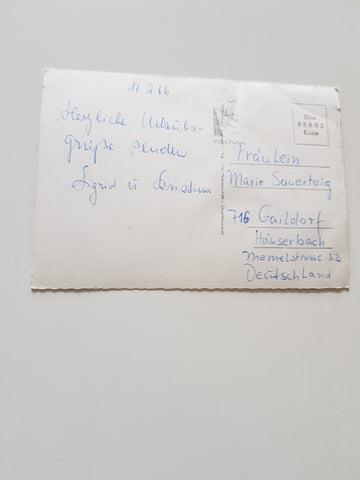 17.2.66
Herzliche Urlaubs-
grüße senden
Sigrid u.
Eine
BRANZ
Karte
Fräulein
Marie Sauerteig
716 Gaildorf
Häuserbach
Memelstrasse 32
Deutschland